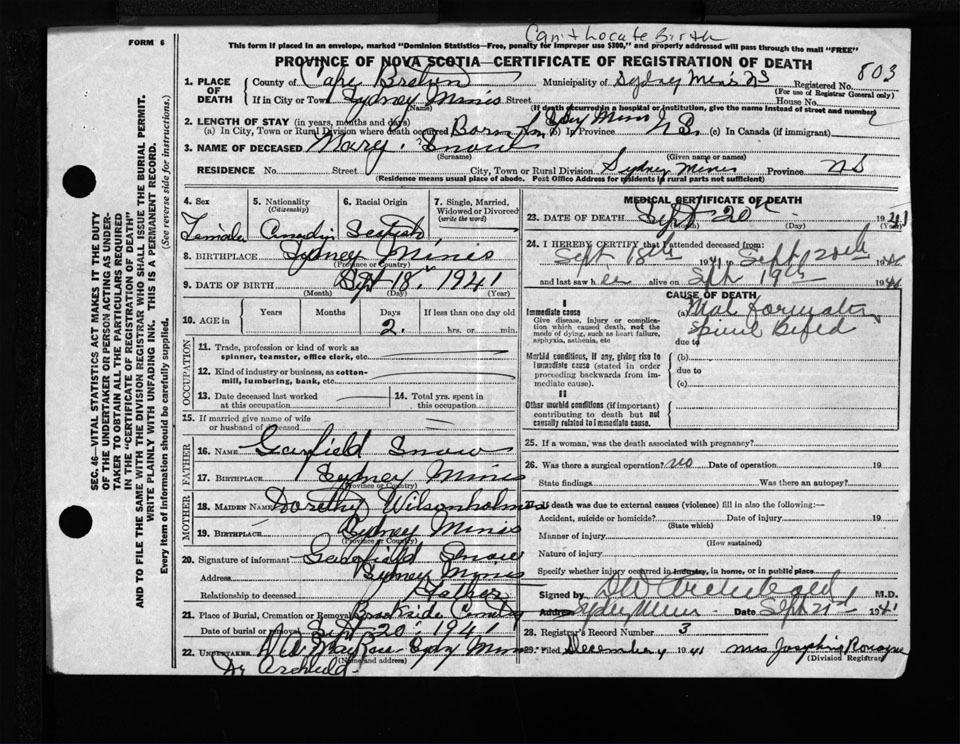 Can't locate Birth
FORM 6
This form if placed in an envelope, marked "Dominion Statistics—Free, penalty for improper use $300," and properly addressed will pass through the mail "FREE"
PROVINCE OF NOVA SCOTIA—CERTIFICATE OF REGISTRATION OF DEATH
1. PLACE OF DEATH County of Cape Breton Municipality of Sydney Mines NS Registered No. 803
(For use of Registrar General only)
If in City or Town Sydney Mines Street House No.
(Name) (If death occurred in a hospital or institution, give the name instead of street and number)
2. LENGTH OF STAY (in years, months and days)
(a) In City, Town or Rural Division where death occurred Born in Sdy Mines (b) In Province N.S. (c) In Canada (if immigrant)
3. NAME OF DECEASED Mary Snow
(Surname) (Given name or names)
RESIDENCE No. Street City, Town or Rural Division Sydney Mines Province NS
(Residence means usual place of abode. Post Office Address for residents in rural parts not sufficient)
4. Sex Female
5. Nationality (Citizenship) Canadian
6. Racial Origin Scottish
7. Single, Married, Widowed or Divorced (write the word)
8. BIRTHPLACE Sydney Mines
(Province or Country)
9. DATE OF BIRTH Sept 18, 1941
(Month) (Day) (Year)
10. AGE in Years Months Days 2. If less than one day old hrs. or min.
OCCUPATION
11. Trade, profession or kind of work as spinner, teamster, office clerk, etc.
12. Kind of industry or business, as cotton-mill, lumbering, bank, etc.
13. Date deceased last worked at this occupation
14. Total yrs. spent in this occupation
15. If married give name of wife or husband of deceased
FATHER
16. NAME Garfield Snow
17. BIRTHPLACE Sydney Mines
(Province or Country)
MOTHER
18. MAIDEN NAME Dorothy Wilsonholme
19. BIRTHPLACE Sydney Mines
(Province or Country)
20. Signature of informant Garfield Snow
Address Sydney Mines
Relationship to deceased Father
21. Place of Burial, Cremation or Removal Brookside Cemetry
Date of burial or removal Sept 20, 1941
22. UNDERTAKER Sydy Mines
(Name and address)
Dr Archibald
MEDICAL CERTIFICATE OF DEATH
23. DATE OF DEATH Sept 20th 1941
(Month) (Day) (Year)
24. I HEREBY CERTIFY that I attended deceased from:
Sept 18th 1941 to Sept 20th 1941
and last saw her alive on Sept 19th 1941
CAUSE OF DEATH
I
Immediate cause
Give disease, injury or complication which caused death, not the mode of dying, such as heart failure, asphyxia, asthenia, etc
(a) Mal Formation
Spine Bifed
due to
Morbid conditions, if any, giving rise to immediate cause (stated in order proceeding backwards from immediate cause).
(b)
due to
(c)
II
Other morbid conditions (if important) contributing to death but not causally related to immediate cause.
25. If a woman, was the death associated with pregnancy?
26. Was there a surgical operation? no Date of operation 19
State findings Was there an autopsy?
27. If death was due to external causes (violence) fill in also the following:
Accident, suicide or homicide? Date of injury 19
(State which)
Manner of injury
(How sustained)
Nature of injury
Specify whether injury occurred in industry, in home, or in public place
Signed by DW Archibald M.D.
Address Sydney Mines Date Sept 21st 1941
28. Registrar's Record Number 3
29. Filed December 4 1941 Mrs Josephine
(Division Registrar)
SEC. 46—VITAL STATISTICS ACT MAKES IT THE DUTY OF THE UNDERTAKER OR PERSON ACTING AS UNDERTAKER TO OBTAIN ALL THE PARTICULARS REQUIRED IN THE "CERTIFICATE OF REGISTRATION OF DEATH" AND TO FILE THE SAME WITH THE DIVISION REGISTRAR WHO SHALL ISSUE THE BURIAL PERMIT.
WRITE PLAINLY WITH UNFADING INK. THIS IS A PERMANENT RECORD.
Every item of information should be carefully supplied. (See reverse side for instructions.)